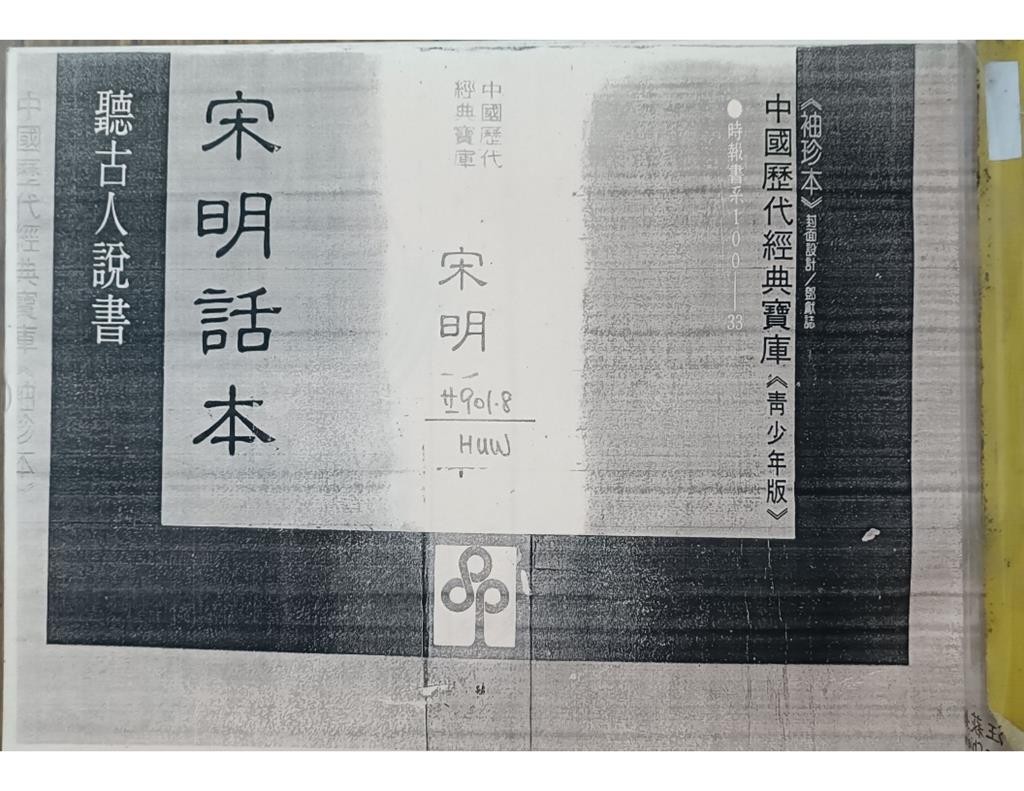 《袖珍本》封面設計／鄧獻誌
中國歷代經典寶庫《青少年版》
●時報書系100——33
中國歷代
經典寶庫
宋明
廿901.8
HUW
宋明話本
聽古人說書
中國歷代經典寶庫《袖珍本》